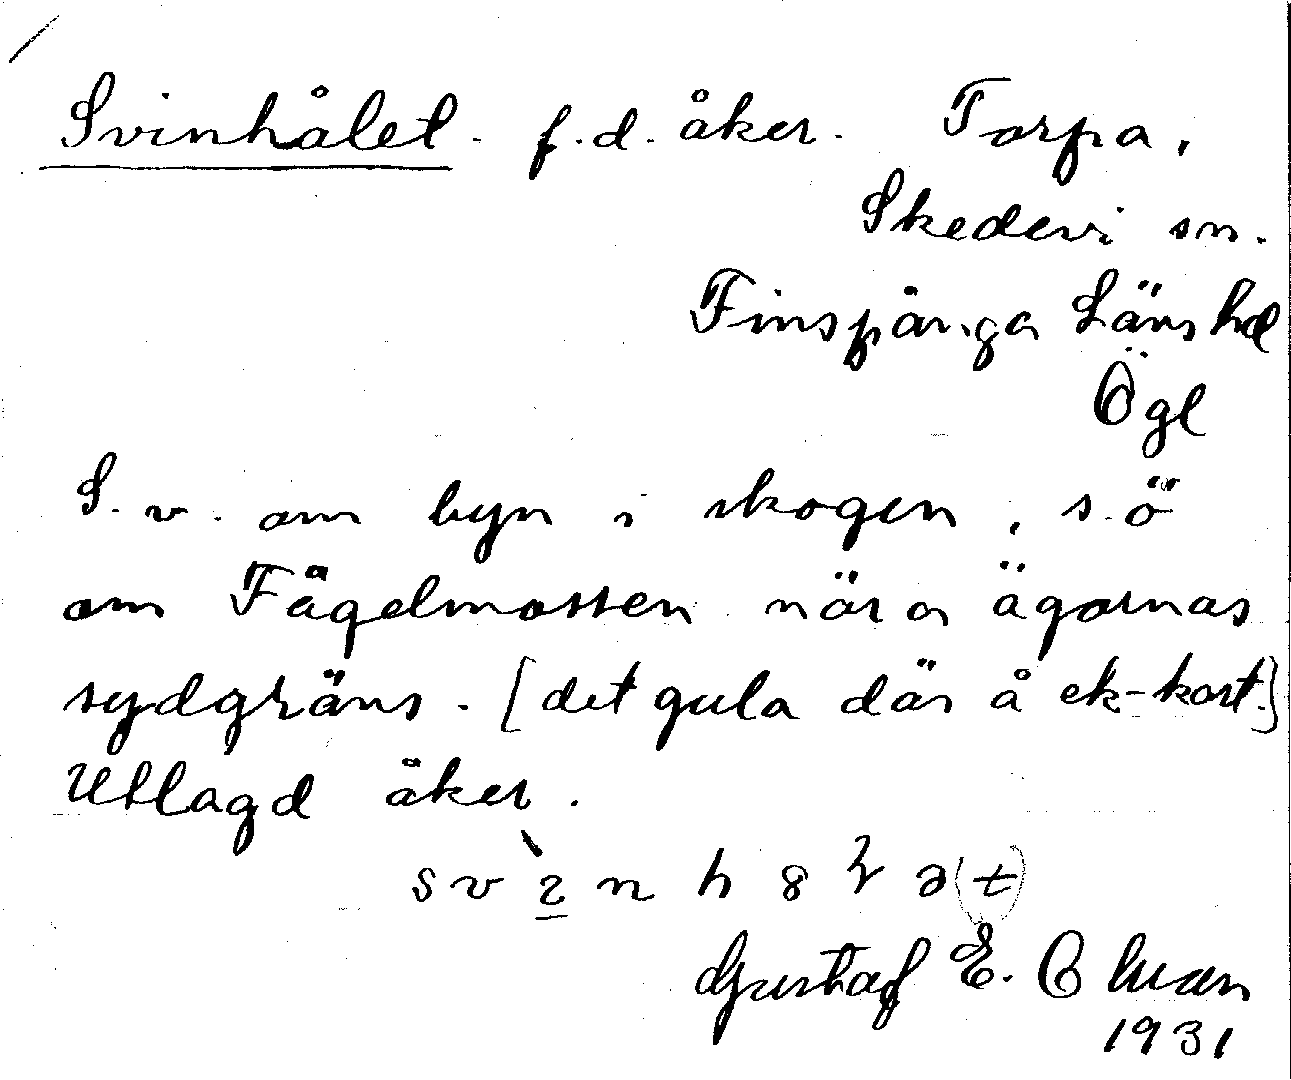 Svinhålet. f.d. åker. Torpa,
Skedevi sn.
Finspånga Läns hd
Ögl
S.v. om byn i skogen, s.ö
om Fågelmossen nära ägornas
sydgräns. [det gula där å ek-kart.]
Utlagd åker.
Gustaf E. Ohman
1931